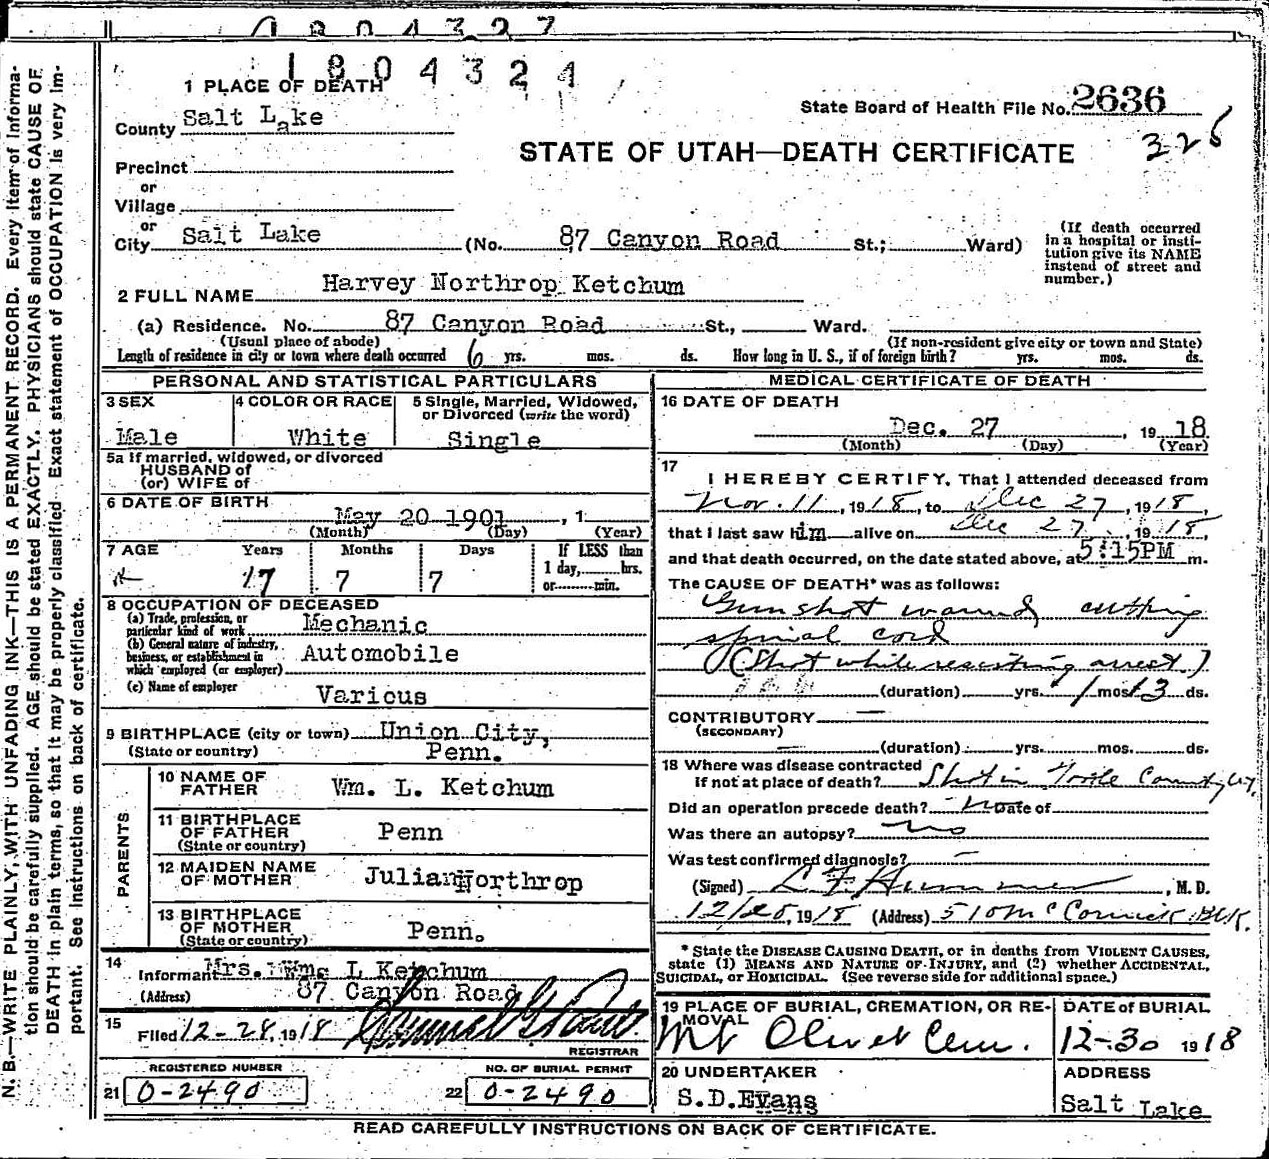 1804324
1 PLACE OF DEATH
State Board of Health File No. 2636
County Salt Lake
326
STATE OF UTAH—DEATH CERTIFICATE
Precinct
or
Village
or
City Salt Lake (No. 87 Canyon Road St.; Ward)
(If death occurred
in a hospital or insti-
tution give its NAME
instead of street and
number.)
2 FULL NAME Harvey Northrop Ketchum
(a) Residence. No. 87 Canyon Road St., Ward.
(Usual place of abode) (If non-resident give city or town and State)
Length of residence in city or town where death occurred 6 yrs. mos. ds. How long in U. S., if of foreign birth? yrs. mos. ds.
PERSONAL AND STATISTICAL PARTICULARS
3 SEX
Male
4 COLOR OR RACE
White
5 Single, Married, Widowed,
or Divorced (write the word)
Single
5a If married, widowed, or divorced
HUSBAND of
(or) WIFE of
6 DATE OF BIRTH
May 20 1901, 1
(Month) (Day) (Year)
7 AGE Years Months Days If LESS than
1 day, hrs.
or min.
17 7 7
8 OCCUPATION OF DECEASED
(a) Trade, profession, or
particular kind of work Mechanic
(b) General nature of industry,
business, or establishment in
which employed (or employer) Automobile
(c) Name of employer Various
9 BIRTHPLACE (city or town) Union City,
(State or country) Penn.
PARENTS
10 NAME OF
FATHER Wm. L. Ketchum
11 BIRTHPLACE
OF FATHER
(State or country) Penn
12 MAIDEN NAME
OF MOTHER Julia Northrop
13 BIRTHPLACE
OF MOTHER
(State or country) Penn.
14
Informant Mrs. Wm. L Ketchum
(Address) 87 Canyon Road
15
Filed 12-28, 1918
REGISTRAR
REGISTERED NUMBER NO. OF BURIAL PERMIT
21 0-2490 22 0-2490
MEDICAL CERTIFICATE OF DEATH
16 DATE OF DEATH
Dec. 27, 1918
(Month) (Day) (Year)
17
I HEREBY CERTIFY, That I attended deceased from
Nov. 11, 1918, to Dec 27, 1918,
that I last saw him alive on Dec 27, 1918,
and that death occurred, on the date stated above, at 5:15PM m.
The CAUSE OF DEATH* was as follows:
Gunshot wound cutting
spinal cord
(Shot while resisting arrest)
(duration) yrs. 1 mos. 13 ds.
CONTRIBUTORY —
(SECONDARY)
— (duration) yrs. mos. ds.
18 Where was disease contracted
if not at place of death? Shot in Tooele County Ut.
Did an operation precede death? no Date of
Was there an autopsy? no
Was test confirmed diagnosis? —
(Signed) , M. D.
, 1918 (Address) 510 McCornick Blk.
* State the DISEASE CAUSING DEATH, or in deaths from VIOLENT CAUSES,
state (1) MEANS AND NATURE OF INJURY, and (2) whether ACCIDENTAL,
SUICIDAL, or HOMICIDAL. (See reverse side for additional space.)
19 PLACE OF BURIAL, CREMATION, OR RE-
MOVAL
Mt Olivet Cem.
DATE of BURIAL
12-30 1918
20 UNDERTAKER
S.D.Evans
ADDRESS
Salt Lake
READ CAREFULLY INSTRUCTIONS ON BACK OF CERTIFICATE.
N. B.—WRITE PLAINLY, WITH UNFADING INK—THIS IS A PERMANENT RECORD. Every item of informa-
tion should be carefully supplied. AGE should be stated EXACTLY. PHYSICIANS should state CAUSE OF
DEATH in plain terms, so that it may be properly classified. Exact statement of OCCUPATION is very im-
portant. See instructions on back of certificate.